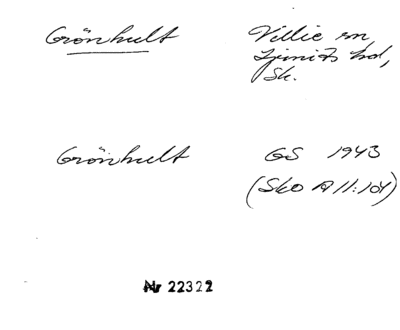 Grönhult Villie sn
Ljunits hd,
Sk.
Grönhult GS 1943
(SkO A 11:101)
Nr 22322